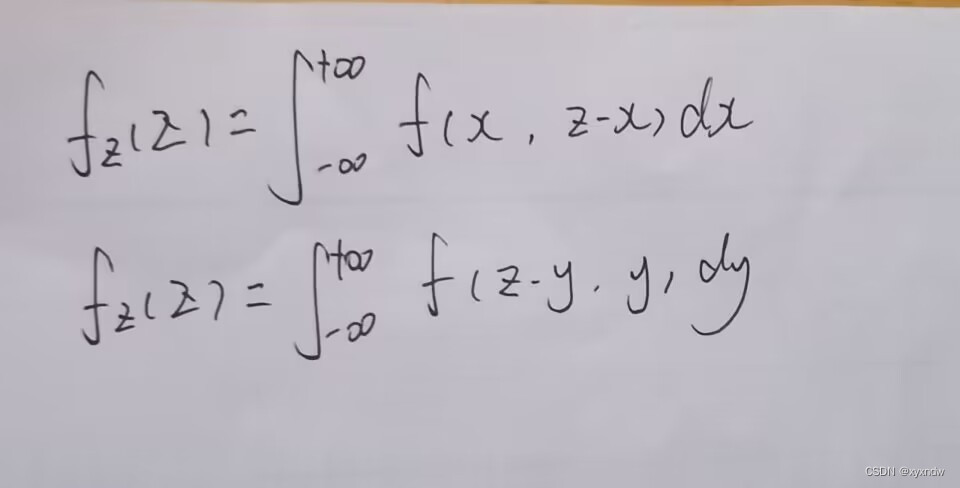 f_Z(z) = ∫_{-∞}^{+∞} f(x, z-x) dx
f_Z(z) = ∫_{-∞}^{+∞} f(z-y, y) dy
CSDN @xyxndw